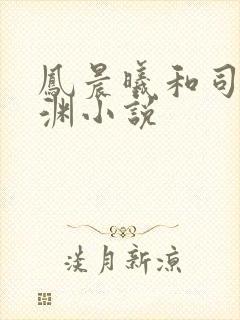 鳳晨曦和司
渊小説
淡月新凉